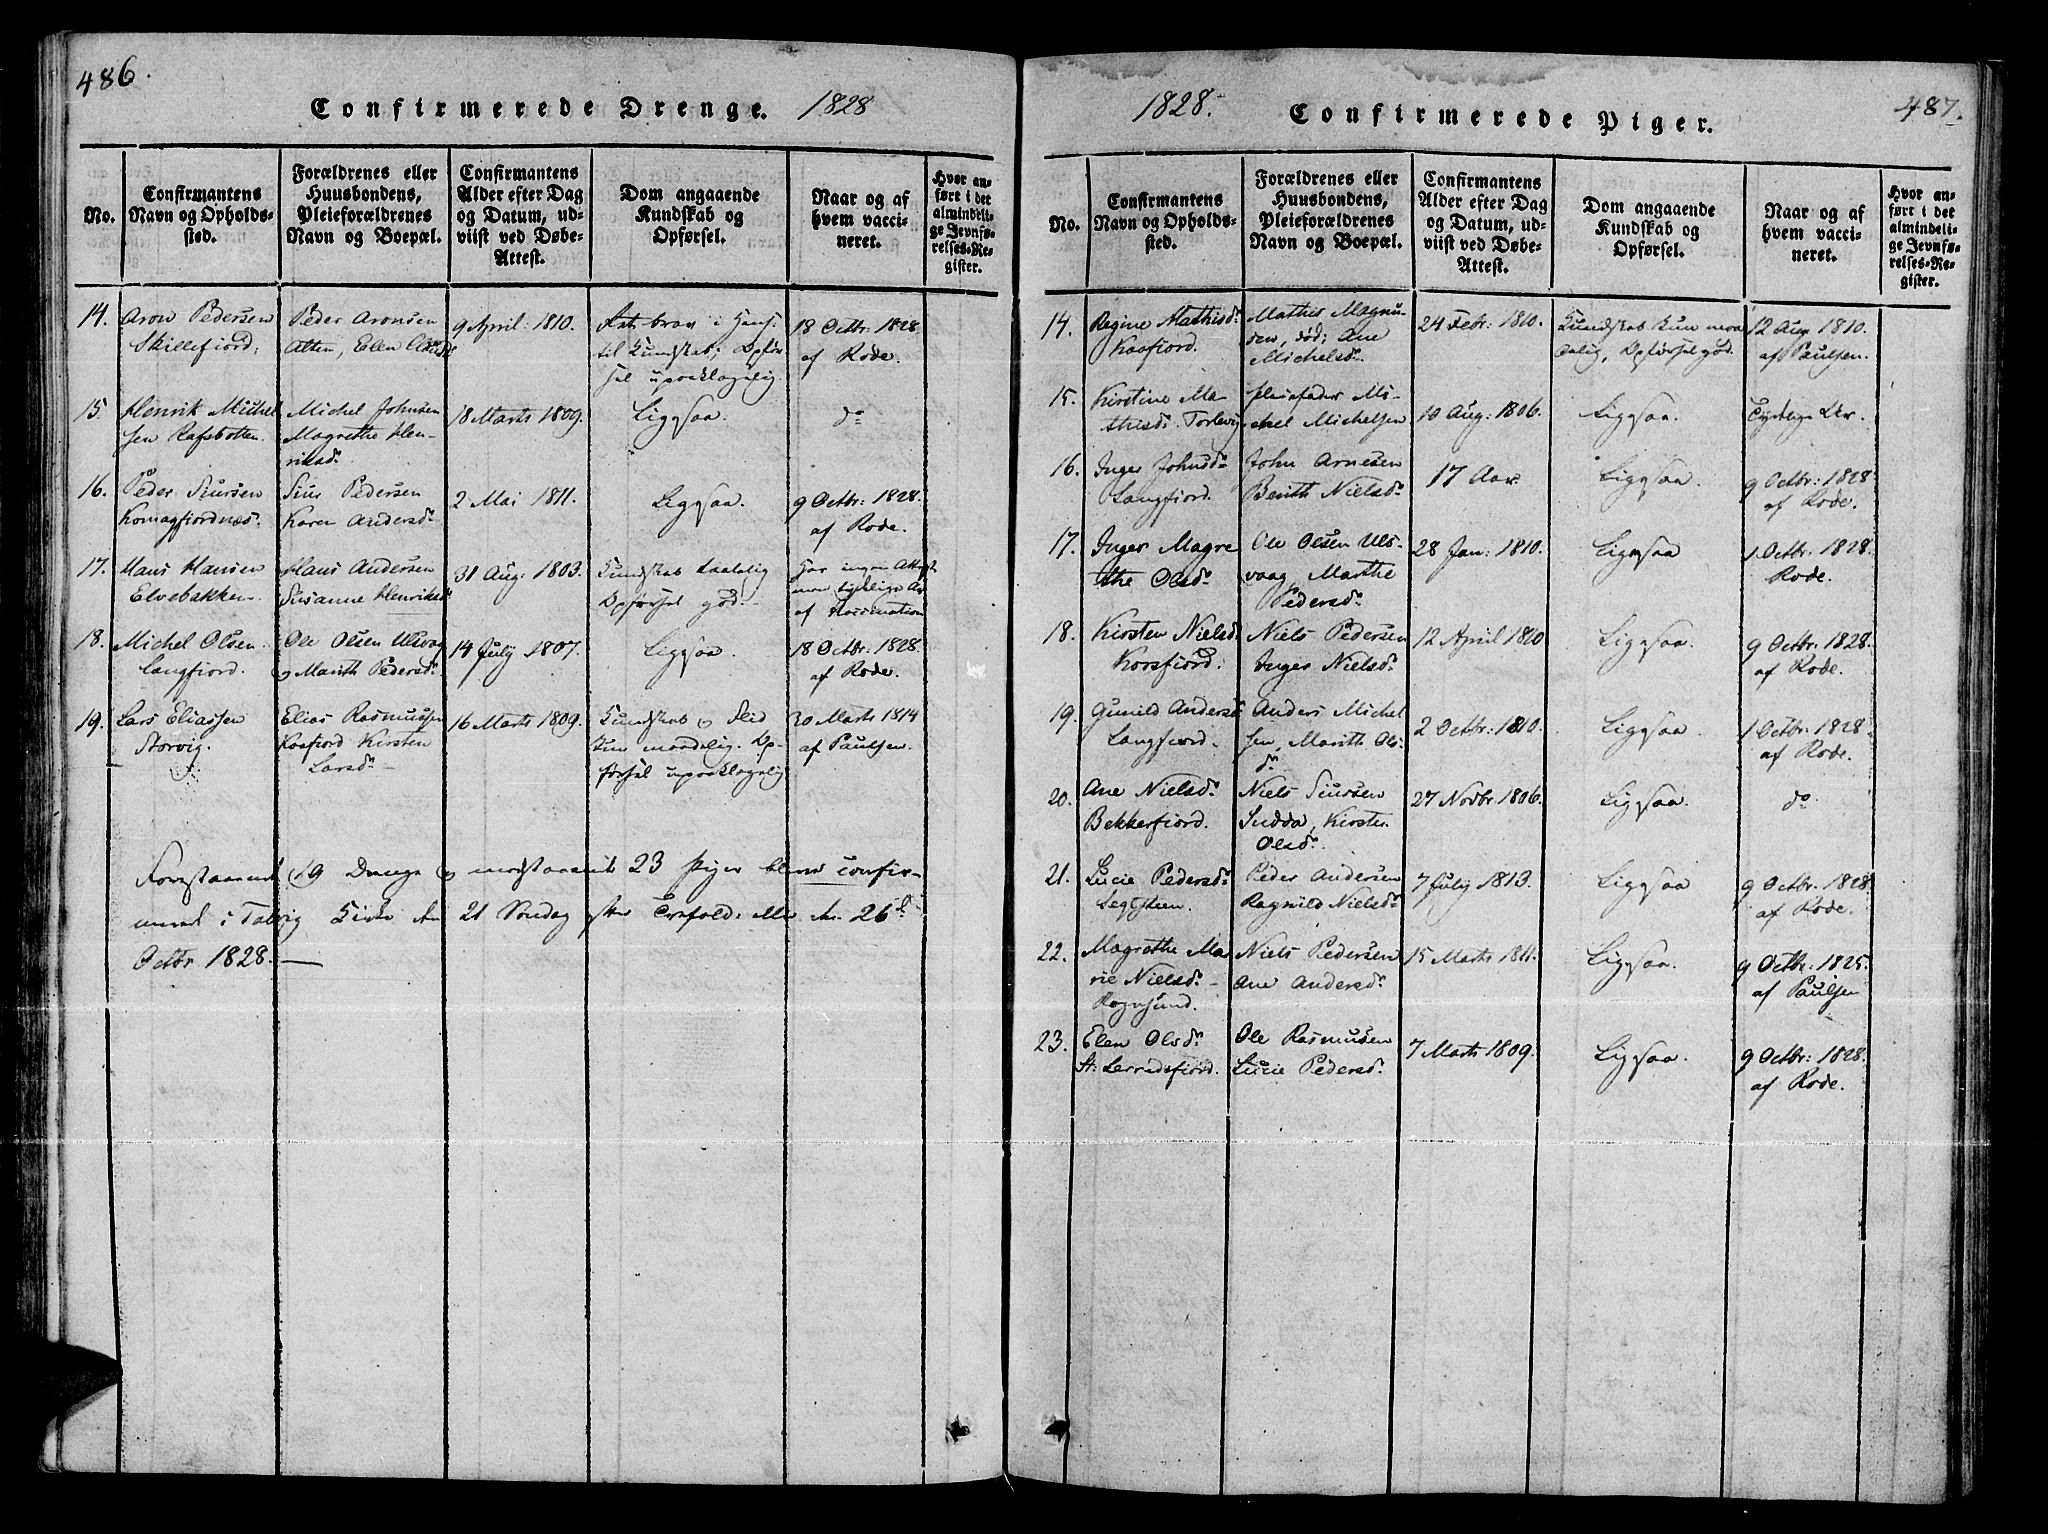 486.
Confirmerede Drenge. 1828
No.
Confirmantens
Navn og Opholds-
sted.
Forældrenes eller
Huusbondens,
Pleieforældrenes
Navn og Boepæl.
Confirmantens
Alder efter Dag
og Datum, ud-
viist ved Døbe-
Attest.
Dom angaaende
Kundskab og
Opførsel.
Naar og af
hvem vacci-
neret.
Hvor an-
ført i det
almindeli-
ge Jevnfø-
relses-Re-
gister.
14.
Aron Pedersen
Skillefjord.
Peder Aronsen
Alten, Elen
9 April: 1810.
brav i Hens.
til Kundskab; Opfør
sel upaaklagelig
18 Octbr: 1828
af Rode.
15
Henrik Michel
sen Rafsbotten.
Michel Johnsen
Magrethe Hen-
riksd.
18 Marts 1809.
Ligesaa.
do
16.
Peder Siursen
Komagfiordnæs.
Siur Pedersen
Karen Andersd.
2 Mai 1811.
Ligesaa.
9 Octbr: 1828.
af Rode.
17.
Hans Hansen
Elvebakken.
Hans Andersen
Susanne Henriksd.
31 Aug: 1803.
Kundskab taalelig
Opførsel god.
har ingen Attest
men tydelige Ar
af Vaccination
18.
Michel Olsen
Langfiord.
Ole Olsen Ulsvag
og Marith Pedersd.
14 July 1807.
Ligesaa.
18 Octbr: 1828.
af Rode.
19.
Lars Eliassen
Storvig.
Elias Rasmussen
Kaafiord Kirsten
Larsd.
16 Marts 1809.
Kundskab og Flid
kun maadelig. Op-
førsel upaaklagelig
30 Marts 1814
af Paulsen.
Forestaaende 19 Drenge og modstaaende 23 Piger bleve confir-
merede i Talvig Kirke den 21 Søndag efter Trefold: eller den 26de
Octbr 1828.
1828.
Confirmerede Piger.
487.
No.
Confirmantens
Navn og Opholds-
sted.
Forældrenes eller
Huusbondens,
Pleieforældrenes
Navn og Boepæl.
Confirmantens
Alder efter Dag
og Datum, ud-
viist ved Døbe-
Attest.
Dom angaaende
Kundskab og
Opførsel.
Naar og af
hvem vacci-
neret.
Hvor an-
ført i det
almindeli-
ge Jevnfø-
relses-Re-
gister.
14.
Regine Mathisd.
Kaafjord.
Mathis Magnu-
sen, død; Ane
Michelsd.
24 Febr: 1810.
Kundskab kun maa
delig, Opførsel god.
12 Aug 1810.
af Paulsen.
15.
Kirstine Ma-
thisd. Torlevig
Pleiefader Mi-
chel Michelsen
10 Aug: 1806.
Ligesaa.
Tydelige Ar.
16.
Inger Johnsd.
Langfjord.
John Arnesen
Berith Nielsd.
17 Aar
Ligesaa.
9 Octbr: 1828
af Rode.
17.
Inger Magre
the Olsd.
Ole Olsen Uls-
vaag, Marthe
Pedersd.
28 Jan: 1810.
Ligesaa
1 Octbr: 1828.
Rode.
18.
Kirsten Nielsd.
Korsfiord.
Niels Pedersen
Inger Nielsd.
12 April 1810
Ligesaa.
9 Octbr: 1828.
af Rode.
19.
Gunild Andersd
Langfiord.
Anders Michel
sen, Marith Ols-
d.
2 Octbr: 1810.
Ligesaa.
1 Octbr: 1828.
af Rode.
20.
Ane Nielsd.
Bekkerfiord.
Niels Siursen
Sudda, Kirsten
Olsd.
27 Novbr. 1806.
Ligesaa.
do
21.
Lucie Pedersd.
Legesteen.
Peder Andersen
Ragnild Nielsd.
7 July 1813.
Ligesaa
9 Octbr: 1828.
af Rode.
22.
Magrethe Ma
rie Nielsd.
Rognsund.
Niels Pedersen
Ane Andersd.
15 Marts 1811.
Ligesaa.
9 Octbr: 1825.
af Paulsen
23.
Elen Olsd.
St: Lerredsfiord.
Ole Rasmusen
Lucie Pedersd.
7 Marts 1809.
Ligesaa.
9 Octbr: 1828.
af Rode.